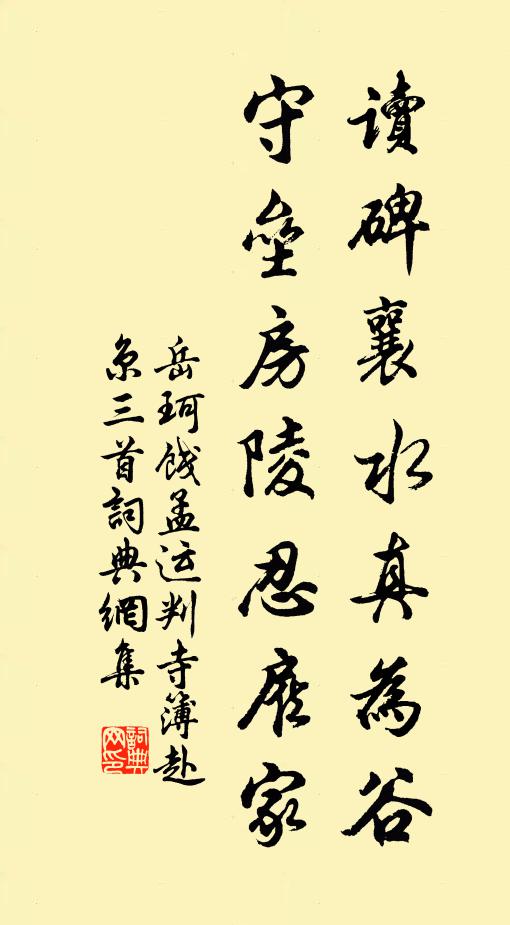 讀碑襄水真為谷
守壘房陵忍雇家
岳珂餞孟運判寺簿赴
京三首詞典網集
詞典
网印